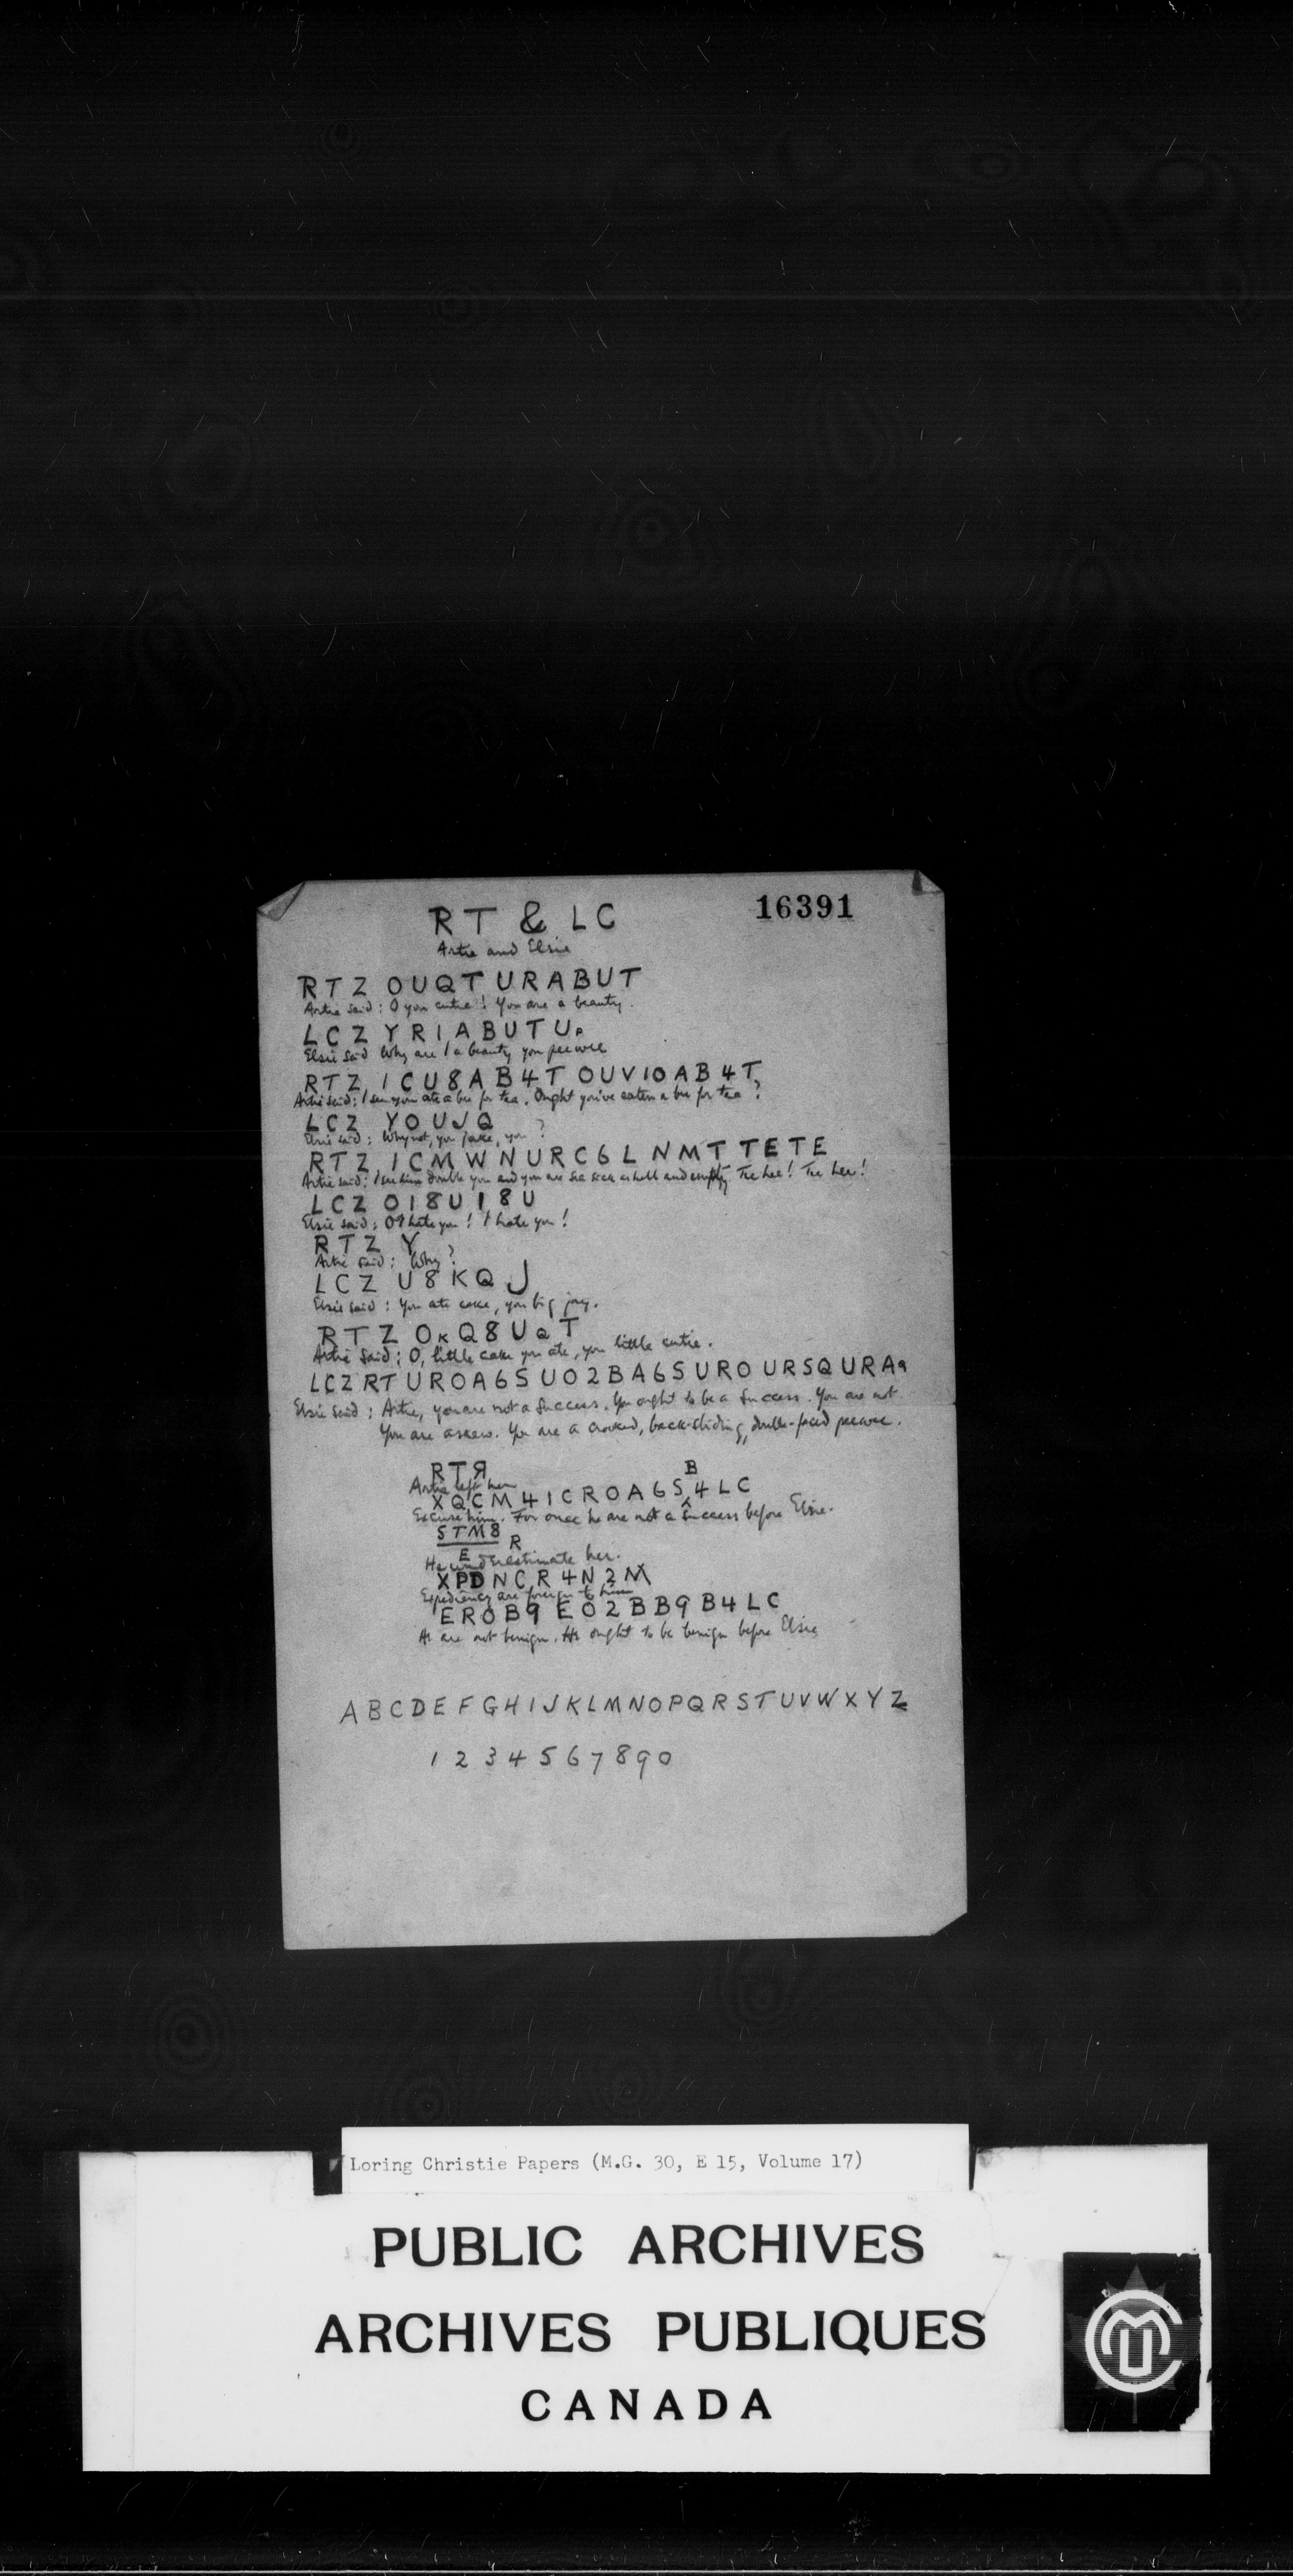 16391
RT & LC
Artie and Elsie
RTZ OUQT URABUT
Artie said: O you cutie! You are a beauty.
LCZ YRIABUTUP
Elsie said Why are I a beauty you peewee
RTZ ICU8AB4T OUVIOAB4T
Artie said: I see you ate a bee for tea. Ought you've eaten a bee for tea?
LCZ YOUJQ
Elsie said: Why not, you jake, you?
RTZ ICMWNURC6LNMT TETE
Artie said: I see him double you and you are sea sick as hell and empty. Tee hee! Tee hee!
LCZ OI8U I8U
Elsie said: O I hate you! I hate you!
RTZ Y
Artie said: Why?
LCZ U8KQJ
Elsie said: You ate cake, you big jay.
RTZ OKQ8UQT
Artie said: O, little cake you ate, you little cutie.
LCZ RT UROA6S UO2BA6S URO URSQ URA9
Elsie said: Artie, you are not a success. You ought to be a success. You are not
You are askew. You are a crooked, back-sliding, double-faced peewee.
RTЯ
Artie left her
B
XQCM 4ICROA6S^4LC
Excuse him. For once he are not a success before Elsie.
STM8
E R
He underestimate her.
XPDNCR4N2M
Expediency are foreign to him
EROB9 EO2BB9 B4LC
He are not benign. He ought to be benign before Elsie
ABCDEFGHIJKLMNOPQRSTUVWXYZ
1234567890
Loring Christie Papers (M.G. 30, E 15, Volume 17)
PUBLIC ARCHIVES
ARCHIVES PUBLIQUES
CANADA